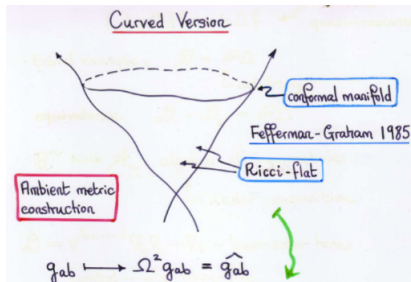 Curved Version
conformal manifold
Fefferman-Graham 1985
Ricci-flat
Ambient metric
construction
g_ab ⟼ Ω² g_ab = ĝ_ab